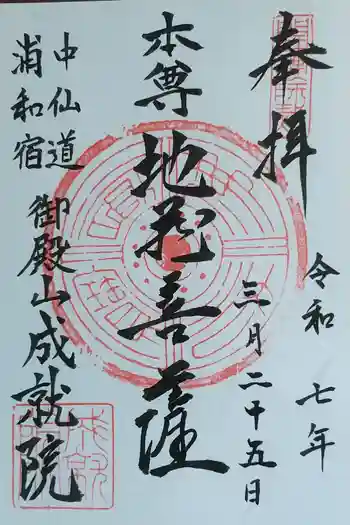 奉拝
令和七年
三月二十五日
本尊
地蔵菩薩
中仙道
浦和宿
御殿山成就院